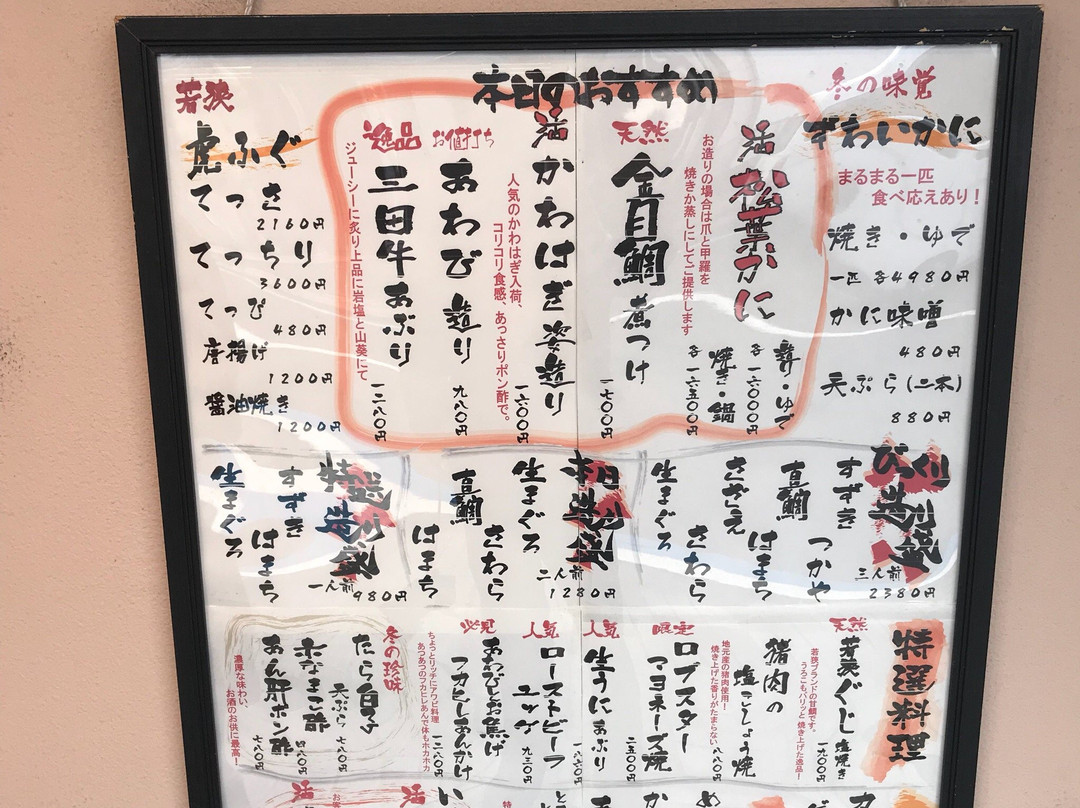 本日のおすすめ
冬の味覚
ずわいかに
まるまる一匹
食べ応えあり!
焼き・ゆで
一匹 各4980円
かに味噌
480円
天ぷら(二本)
880円
活
松葉かに
造り・ゆで
各一六〇〇〇円
焼き・鍋
各一六五〇〇円
お造りの場合は爪と甲羅を
焼きか蒸しにしてご提供します
天然
金目鯛煮つけ
一七〇〇円
活かわはぎ姿造り
一六〇〇円
人気のかわはぎ入荷、
コリコリ食感、あっさりポン酢で。
お値打ち
あわび造り
九八〇円
逸品
三田牛あぶり
一二八〇円
ジューシーに炙り上品に岩塩と山葵にて
若狭
虎ふぐ
てっさ
2160円
てっちり
3600円
てっぴ
480円
唐揚げ
1200円
醤油焼き
1200円
造り盛
三人前
2380円
すずき
つかや
真鯛
はまち
さざえ
さわら
生まぐろ
本日造り盛
二人前
1280円
生まぐろ
さわら
真鯛
はまち
特選造り盛
一人前
980円
すずき
はまち
生まぐろ
特選料理
天然
若狭ぐじ塩焼き
一九〇〇円
若狭ブランドの甘鯛です。
うろこもパリッと焼き上げた逸品!
猪肉の
塩こしょう焼
八八〇円
地元産の猪肉使用!
焼き上げた香りがたまらない
限定
ロブスター
マヨネーズ焼
二五〇〇円
人気
生うにあぶり
一八六〇円
人気
ローストビーフ
ユッケ
九三〇円
必見
あわびとお焦げ
フカヒレあんかけ
一二八〇円
ちょっとリッチにアワビ料理
あつあつのフカヒレあんで体もホカホカ
冬の珍味
たら白子
天ぷら
七八〇円
赤なまこ酢
四八〇円
あん肝ポン酢
七八〇円
濃厚な味わい、
お酒のお供に最高!
活
活